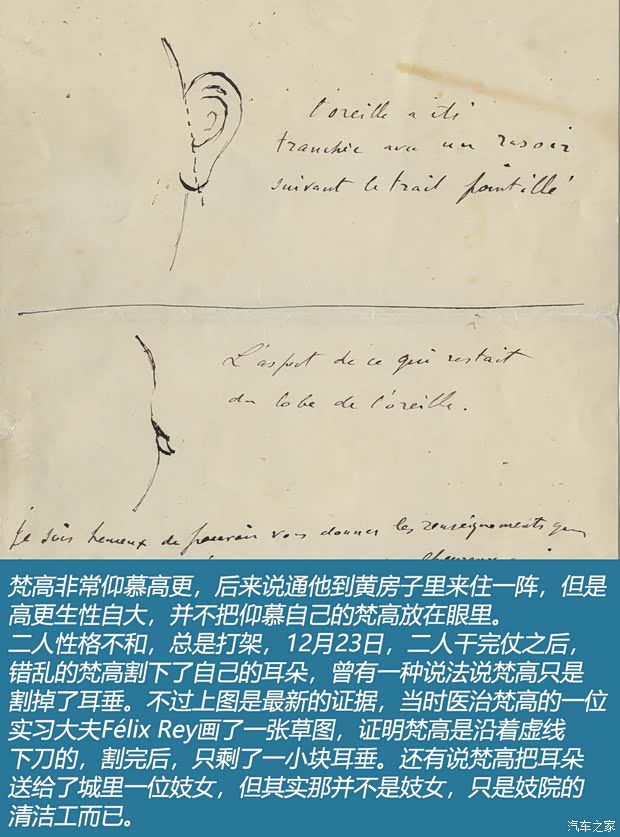 l'oreille a été
tranchée avec un rasoir
suivant le trait pointillé
L'aspect de ce qui restait
du lobe de l'oreille.
Je suis heureux de pouvoir vous donner les renseignements que
梵高非常仰慕高更，后来说通他到黄房子里来住一阵，但是
高更生性自大，并不把仰慕自己的梵高放在眼里。
二人性格不和，总是打架，12月23日，二人干完仗之后，
错乱的梵高割下了自己的耳朵，曾有一种说法说梵高只是
割掉了耳垂。不过上图是最新的证据，当时医治梵高的一位
实习大夫Félix Rey画了一张草图，证明梵高是沿着虚线
下刀的，割完后，只剩了一小块耳垂。还有说梵高把耳朵
送给了城里一位妓女，但其实那并不是妓女，只是妓院的
清洁工而已。
汽车之家